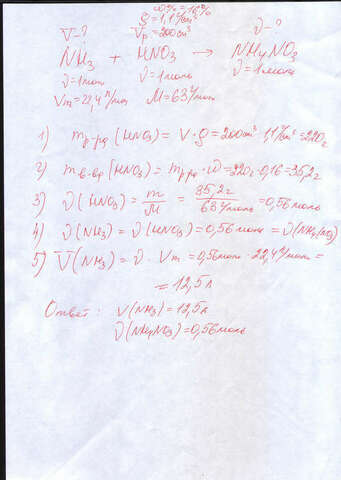 ω% = 16%
ρ = 1,1 г/см³
V-? Vр = 200 см³ ν-?
NH₃ + HNO₃ → NH₄NO₃
ν = 1 моль ν = 1 моль ν = 1 моль
Vm = 22,4 л/моль M = 63 г/моль
1) mр-ра (HNO₃) = V · ρ = 200 см³ · 1,1 г/см³ = 220 г
2) mв-ва (HNO₃) = mр-ра · ω = 220 г · 0,16 = 35,2 г
3) ν (HNO₃) = m/M = 35,2 г / 63 г/моль = 0,56 моль
4) ν (NH₃) = ν (HNO₃) = 0,56 моль = ν (NH₄NO₃)
5) V (NH₃) = ν · Vm = 0,56 моль · 22,4 л/моль =
= 12,5 л
Ответ: V (NH₃) = 12,5 л
ν (NH₄NO₃) = 0,56 моль